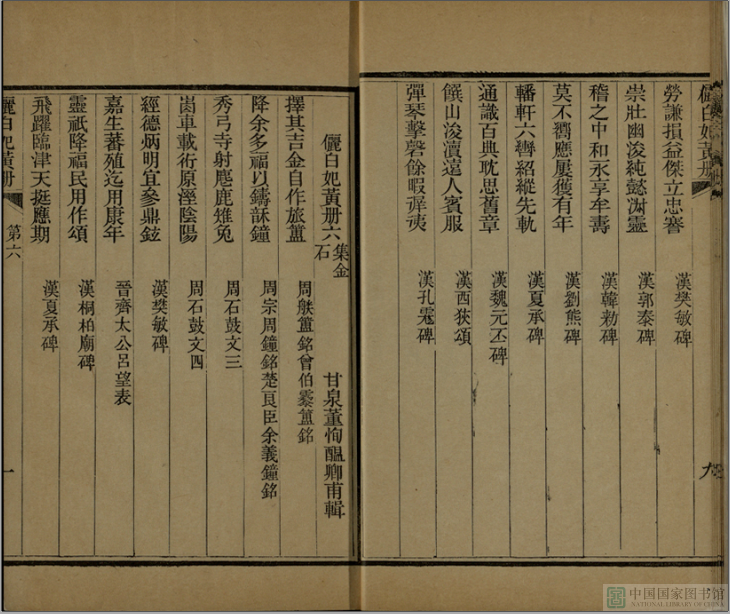 儷白妃黃册
勞謙損益傑立忠謇 漢樊敏碑
崇壯幽浚純懿淵靈 漢郭泰碑
稽之中和永享牟壽 漢韓勑碑
莫不覊應屢獲有年 漢劉熊碑
轓軒六轡紹縱先軌 漢夏承碑
通識百典耽思舊章 漢魏元丕碑
饌山浚瀆遠人賓服 漢西狹頌
彈琴擊磬餘暇徲夷 漢孔宠碑
九
儷白妃黃册六 集金石 甘泉董恂醞卿甫輯
擇其吉金自作旅簠 周䑣簠銘曾伯霥簠銘
降余多福以鑄龢鐘 周宗周鐘銘楚良臣余義鐘銘
秀弓寺射麀鹿雉兔 周石鼓文三
㞻車載術原溼陰陽 周石鼓文四
經德炳明宜參鼎鉉 漢樊敏碑
嘉生蕃殖迄用康年 晉齊太公呂望表
靈祇降福民用作頌 漢桐柏廟碑
飛躍臨津天挺應期 漢夏承碑
儷白妃黃册 第六 一
中国国家图书馆
NATIONAL LIBRARY OF CHINA